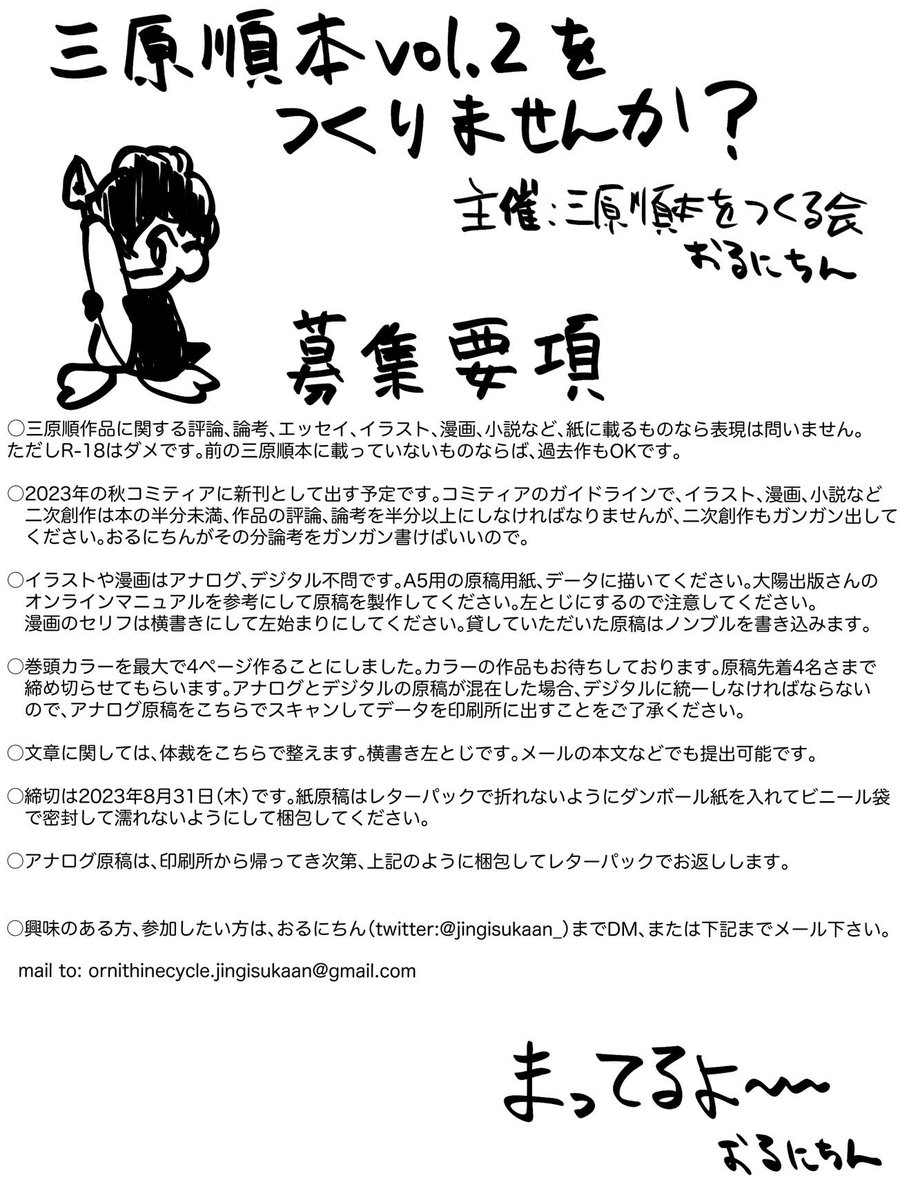 三原順本vol.2を
つくりませんか?
主催:三原順本をつくる会
おるにちん
募集要項
○三原順作品に関する評論、論考、エッセイ、イラスト、漫画、小説など、紙に載るものなら表現は問いません。
ただしR-18はダメです。前の三原順本に載っていないものならば、過去作もOKです。
○2023年の秋コミティアに新刊として出す予定です。コミティアのガイドラインで、イラスト、漫画、小説など
二次創作は本の半分未満、作品の評論、論考を半分以上にしなければなりませんが、二次創作もガンガン出して
ください。おるにちんがその分論考をガンガン書けばいいので。
○イラストや漫画はアナログ、デジタル不問です。A5用の原稿用紙、データに描いてください。大陽出版さんの
オンラインマニュアルを参考にして原稿を製作してください。左とじにするので注意してください。
漫画のセリフは横書きにして左始まりにしてください。貸していただいた原稿はノンブルを書き込みます。
○巻頭カラーを最大で4ページ作ることにしました。カラーの作品もお待ちしております。原稿先着4名さまで
締め切らせてもらいます。アナログとデジタルの原稿が混在した場合、デジタルに統一しなければならない
ので、アナログ原稿をこちらでスキャンしてデータを印刷所に出すことをご了承ください。
○文章に関しては、体裁をこちらで整えます。横書き左とじです。メールの本文などでも提出可能です。
○締切は2023年8月31日(木)です。紙原稿はレターパックで折れないようにダンボール紙を入れてビニール袋
で密封して濡れないようにして梱包してください。
○アナログ原稿は、印刷所から帰ってき次第、上記のように梱包してレターパックでお返しします。
○興味のある方、参加したい方は、おるにちん(twitter:@jingisukaan_)までDM、または下記までメール下さい。
mail to: ornithinecycle.jingisukaan@gmail.com
まってるよ〜〜
おるにちん